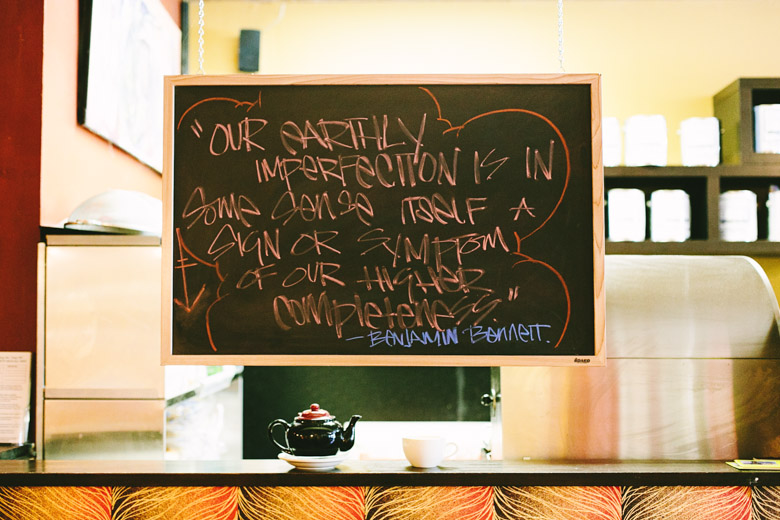 "OUR EARTHLY
IMPERFECTION IS IN
SOME SENSE ITSELF A
SIGN OR SYMPTOM
OF OUR HIGHER
completeness"
- BENJAMIN BENNETT.